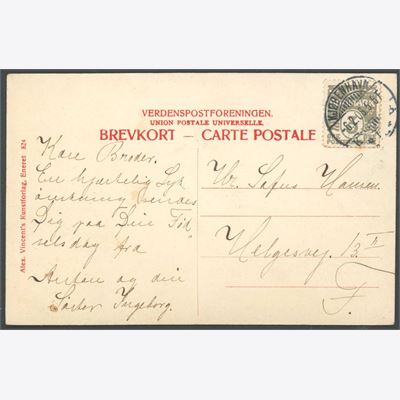 VERDENSPOSTFORENINGEN.
UNION POSTALE UNIVERSELLE.
BREVKORT — CARTE POSTALE
KJØBENHAVN
Alex. Vincent's Kunstforlag, Eneret 824
Kære Broder.
En hjærtelig Lyk
ønskning sendes
Dig paa Din Fød
selsdag fra
Anton og din
Søster Ingeborg.
Hr. Sofus Hansen.
Helgesvej 13 II
F.